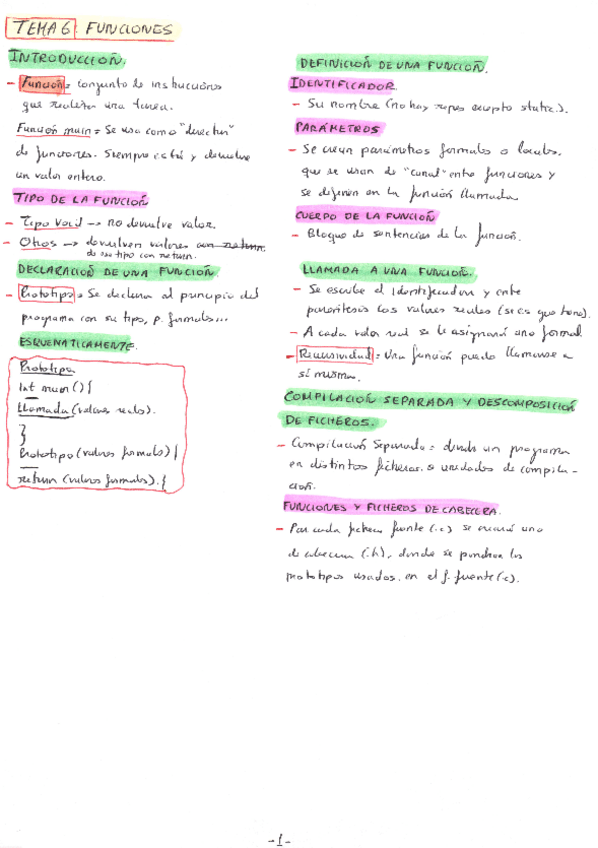 TEMA 6: FUNCIONES
INTRODUCCIÓN.
- Función = conjunto de instrucciones
que realizan una tarea.
Función main = Se usa como "director"
de funciones. Siempre está y devuelve
un valor entero.
TIPO DE LA FUNCIÓN
- Tipo Void → no devuelve valor.
- Otros → devuelven valores con return.
de su tipo con return.
DECLARACIÓN DE UNA FUNCIÓN.
- Prototipo = Se declara al principio del
programa con su tipo, p. formales...
ESQUEMATICAMENTE.
Prototipo
int main () {
Llamada (valores reales).
}
Prototipo (valores formales) {
return (valores formales). {
DEFINICIÓN DE UNA FUNCIÓN.
IDENTIFICADOR.
- Su nombre (no hay repes excepto static.).
PARÁMETROS
- Se crean parámetros formales o locales,
que se usan de "canal" entre funciones y
se definen en la función llamada.
CUERPO DE LA FUNCIÓN
- Bloque de sentencias de la función.
LLAMADA A UNA FUNCIÓN.
- Se escribe el identificador y entre
paréntesis los valores reales (si es que tiene).
- A cada valor real se le asignará uno formal
- Recursividad = Una función puede llamarse a
sí misma.
COMPILACIÓN SEPARADA Y DESCOMPOSICIÓN
DE FICHEROS.
- Compilación Separada = divide un programa
en distintos ficheros o unidades de compila-
ción.
FUNCIONES Y FICHEROS DE CABECERA.
- Por cada fichero fuente (.c) se creará uno
de cabecera (.h), donde se pondrán los
prototipos usados en el f. fuente (.c).
-1-